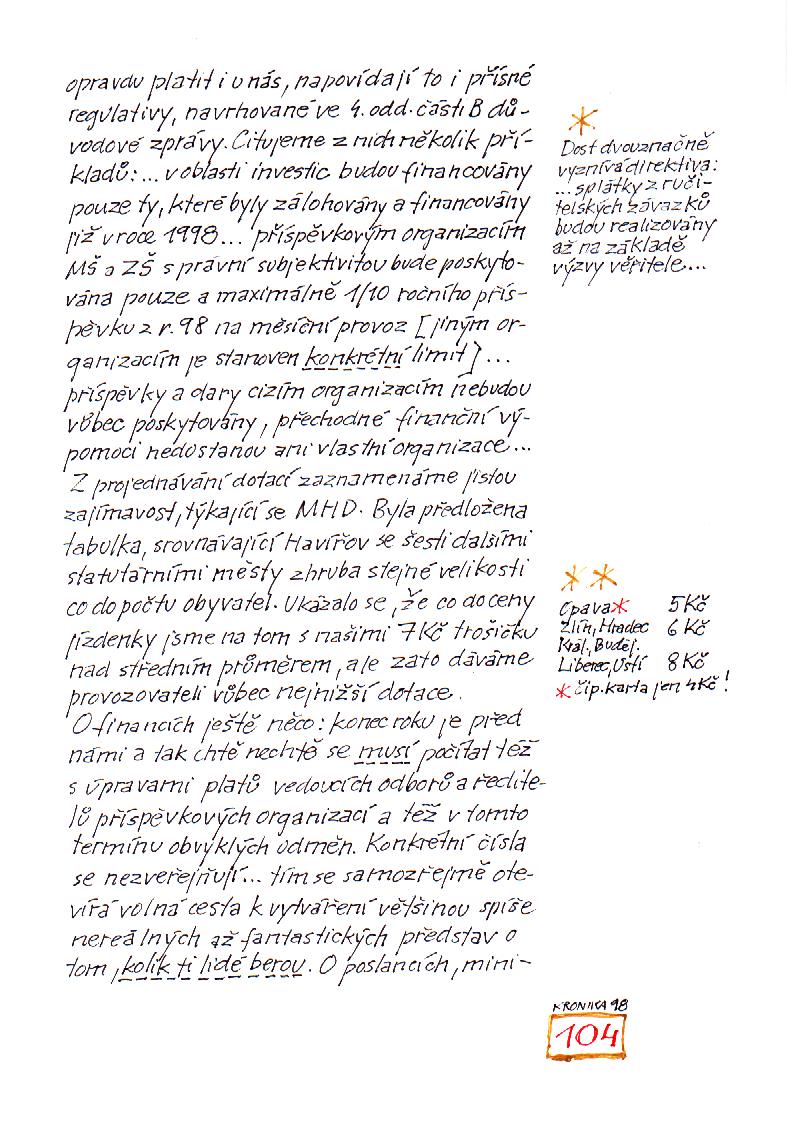 opravdu platit i u nás, napovídají to i přísné
regulativy, navrhované ve 4. odd. části B dů-
vodové zprávy. Citujeme z nich několik pří-
kladů: ... v oblasti investic budou financovány
pouze ty, které byly zálohovány a financovány
již v roce 1998... příspěvkovým organizacím
MŠ a ZŠ s právní subjektivitou bude poskyto-
vána pouze a maximálně 1/10 ročního přís-
pěvku z r. 98 na měsíční provoz [jiným or-
ganizacím je stanoven konkrétní limit] ...
příspěvky a dary cizím organizacím nebudou
vůbec poskytovány, přechodné finanční vý-
pomoci nedostanou ani vlastní organizace...
Z projednávání dotací zaznamenáme jistou
zajímavost, týkající se MHD. Byla předložena
tabulka, srovnávající Havířov se šesti dalšími
statutárními městy zhruba stejné velikosti
co do počtu obyvatel. Ukázalo se, že co do ceny
jízdenky jsme na tom s našimi 7 Kč trošičku
nad středním průměrem, ale zato dáváme
provozovateli vůbec nejnižší dotace.
O financích ještě něco: konec roku je před
námi a tak chtě nechtě se musí počítat též
s úpravami platů vedoucích odborů a ředite-
lů příspěvkových organizací a též v tomto
termínu obvyklých odměn. Konkrétní čísla
se nezveřejňují... tím se samozřejmě ote-
vírá volná cesta k vytváření většinou spíše
nereálných až fantastických představ o
tom, kolik ti lidé berou. O poslancích, mini-
*
Dost dvouznačně
vyznívá direktiva:
... splátky z ruči-
telských závazků
budou realizovány
až na základě
výzvy věřitele...
* *
Opava* 5 Kč
Zlín, Hradec 6 Kč
Král., Buděj.
Liberec, Ústí 8 Kč
* čip. karta jen 4 Kč!
KRONIKA 98
104